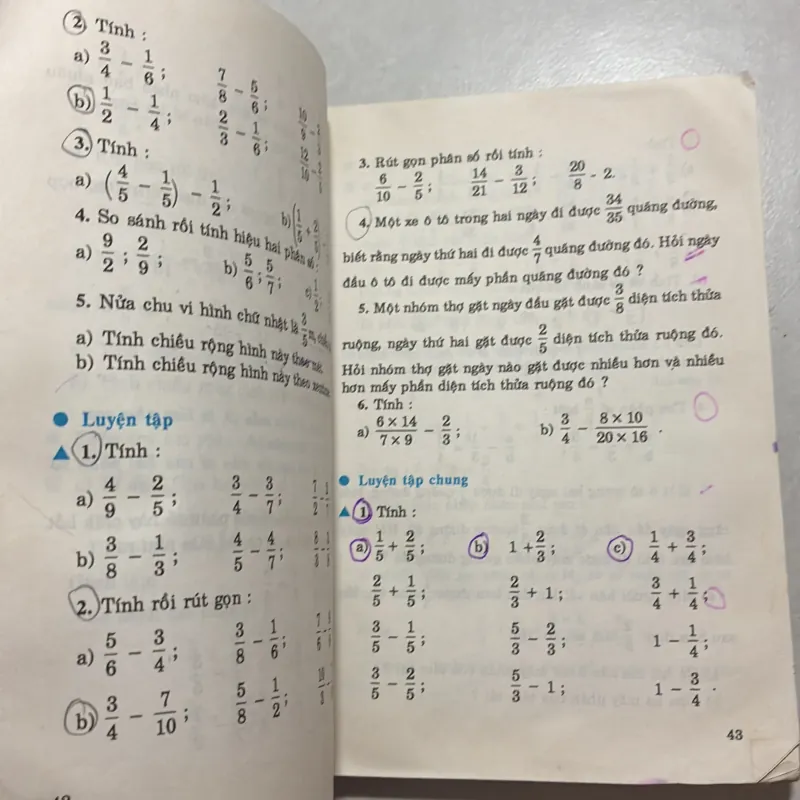 2. Tính :
a) 3/4 − 1/6 ; 7/8 − 5/6 ;
b) 1/2 − 1/4 ; 2/3 − 1/6 ;
3. Tính :
a) (4/5 − 1/5) − 1/2 ;
4. So sánh rồi tính hiệu hai phân số :
a) 9/2 ; 2/9 ; b) 5/6 ; 5/7 ;
5. Nửa chu vi hình chữ nhật là 3/5 m,
a) Tính chiều rộng hình này theo
b) Tính chiều rộng hình này theo
● Luyện tập
▲ 1. Tính :
a) 4/9 − 2/5 ; 3/4 − 3/7 ;
b) 3/8 − 1/3 ; 4/5 − 4/7 ;
2. Tính rồi rút gọn :
a) 5/6 − 3/4 ; 3/8 − 1/6 ;
b) 3/4 − 7/10 ; 5/8 − 1/2 ;
3. Rút gọn phân số rồi tính :
6/10 − 2/5 ; 14/21 − 3/12 ; 20/8 - 2.
4. Một xe ô tô trong hai ngày đi được 34/35 quãng đường,
biết rằng ngày thứ hai đi được 4/7 quãng đường đó. Hỏi ngày
đầu ô tô đi được mấy phần quãng đường đó ?
5. Một nhóm thợ gặt ngày đầu gặt được 3/8 diện tích thửa
ruộng, ngày thứ hai gặt được 2/5 diện tích thửa ruộng đó.
Hỏi nhóm thợ gặt ngày nào gặt được nhiều hơn và nhiều
hơn mấy phần diện tích thửa ruộng đó ?
6. Tính :
a) 6 × 14/7 × 9 − 2/3 ; b) 3/4 − 8 × 10/20 × 16 .
● Luyện tập chung
▲ 1. Tính :
a) 1/5 + 2/5 ; b) 1 + 2/3 ; c) 1/4 + 3/4 ;
2/5 + 1/5 ; 2/3 + 1 ; 3/4 + 1/4 ;
3/5 − 1/5 ; 5/3 − 2/3 ; 1 − 1/4 ;
3/5 − 2/5 ; 5/3 − 1 ; 1 − 3/4 .
43